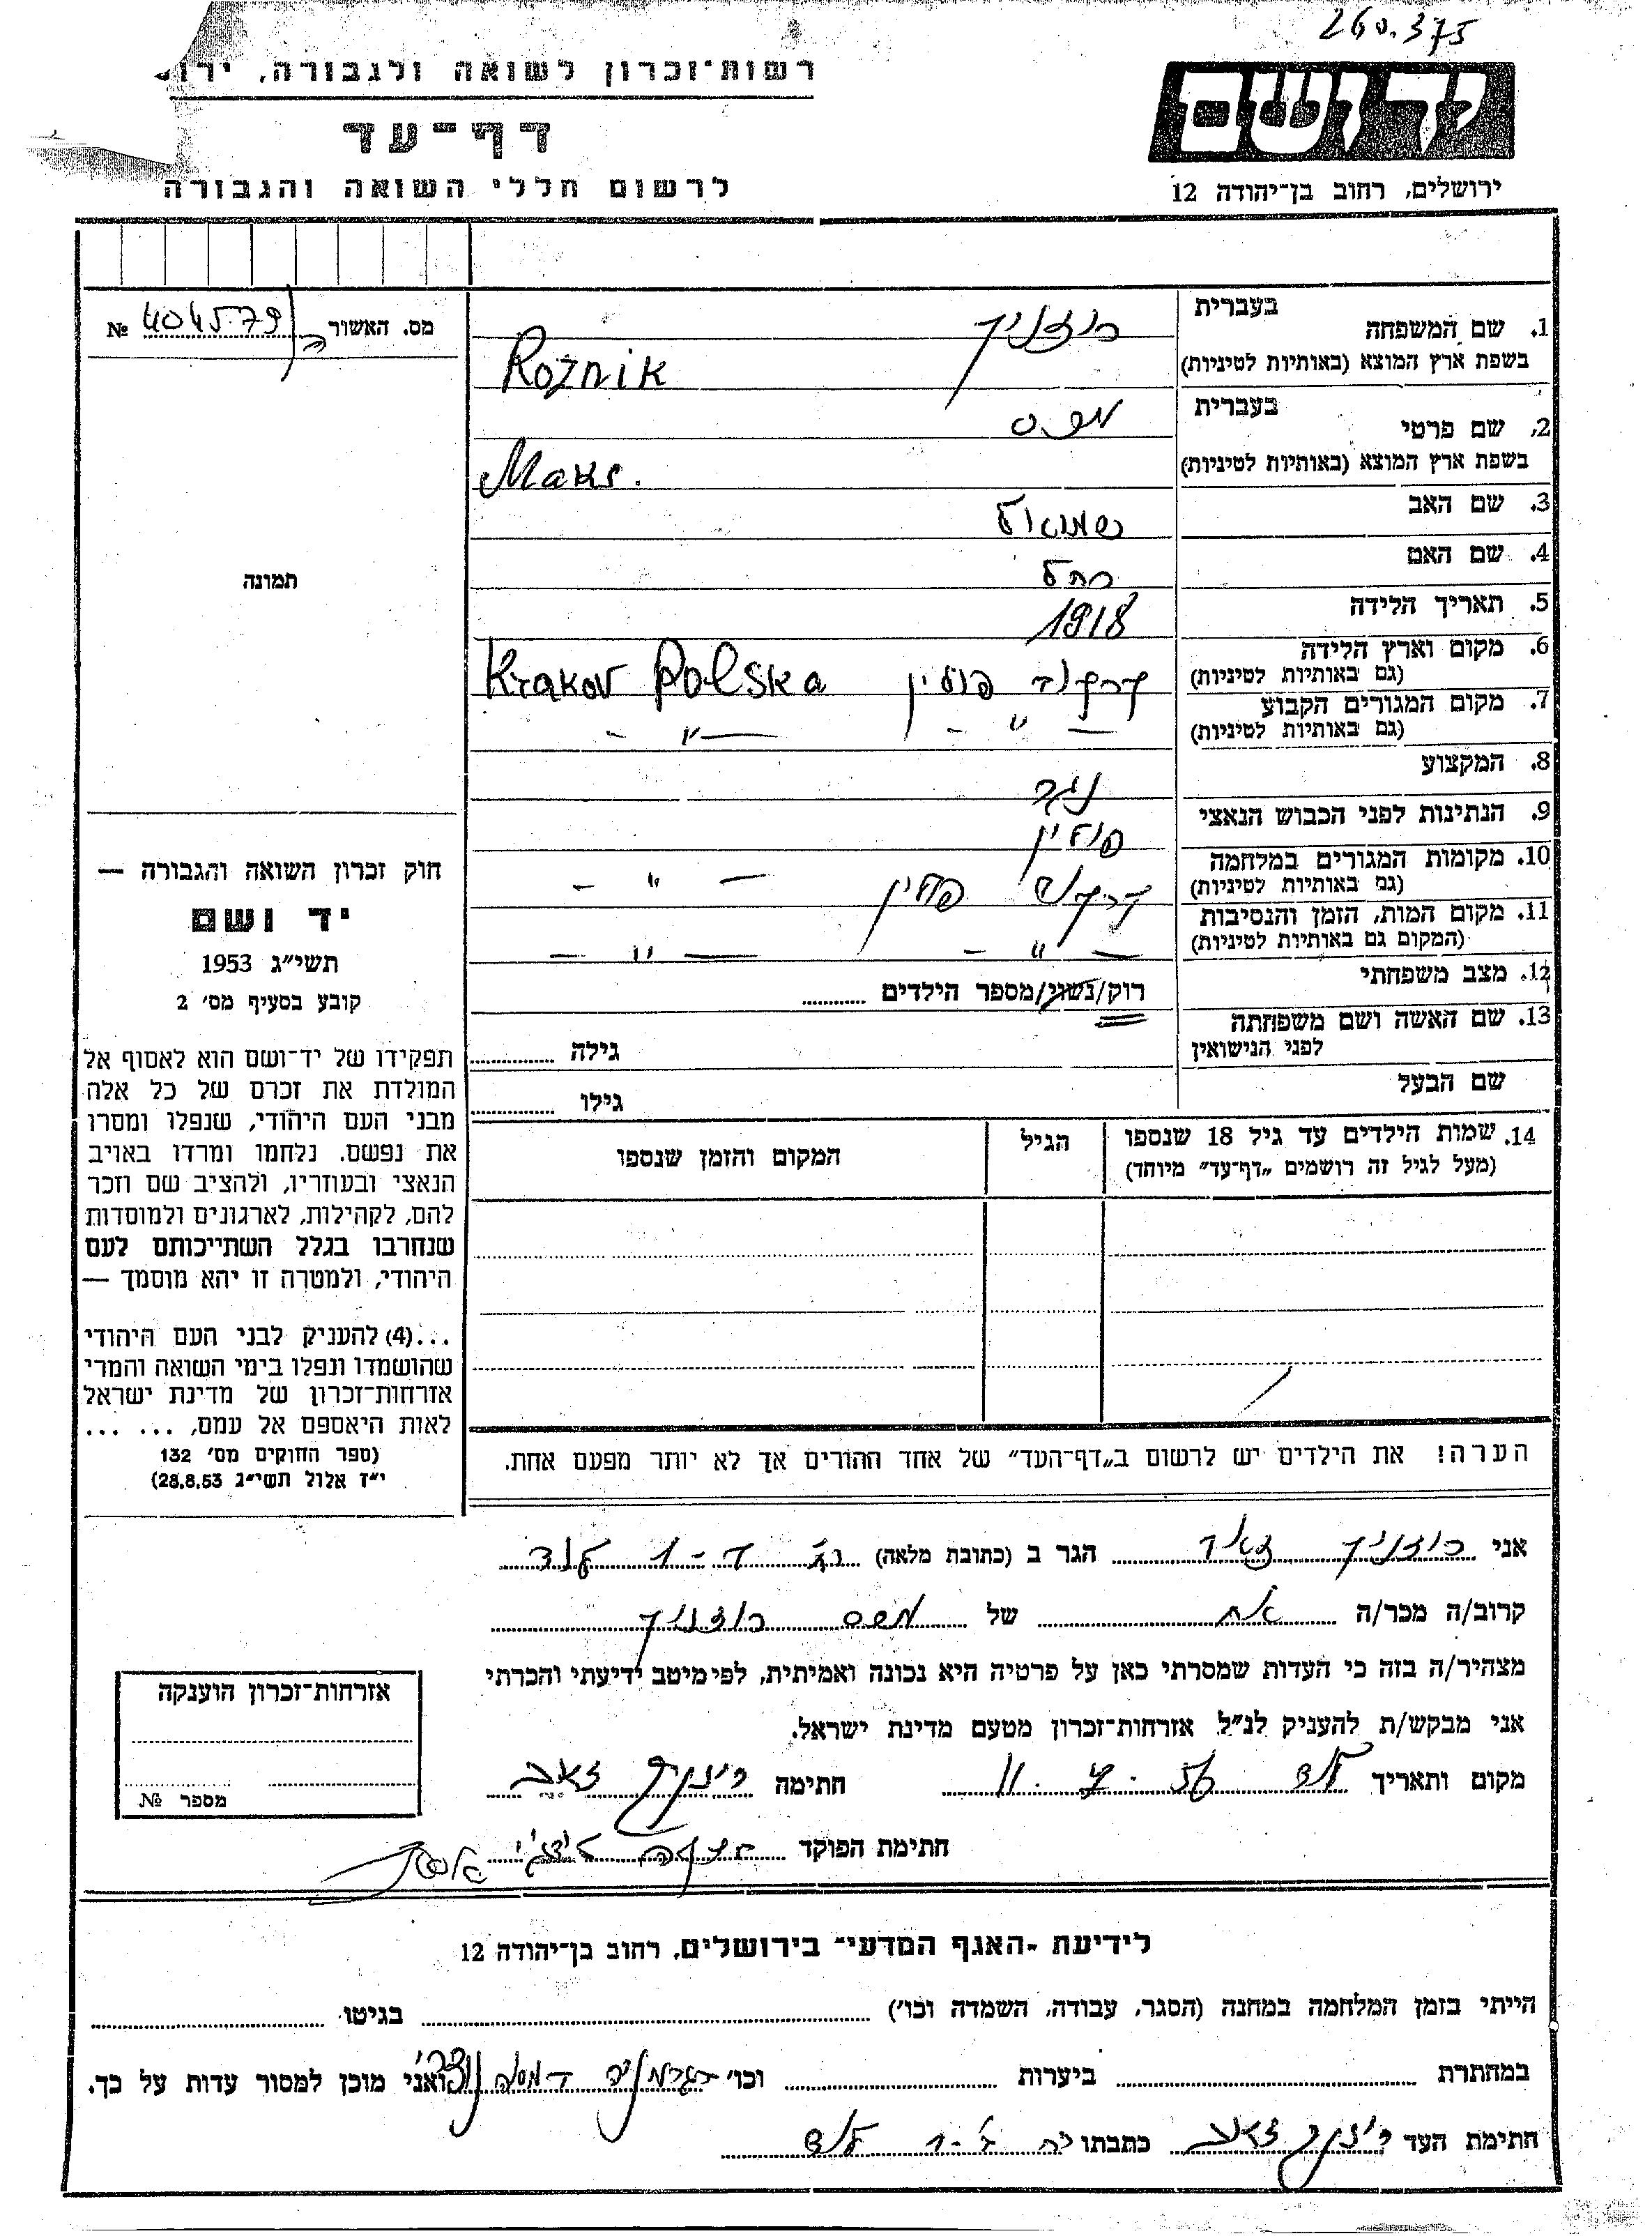 260.375
רשות־זכרון לשואה ולגבורה,
דף־עד
לרשום חללי השואה והגבורה
יד ושם
ירושלים, רחוב בן־יהודה 12
מס. האשור № 404579
תמונה
חוק זכרון השואה והגבורה —
יד ושם
תשי״ג 1953
קובע בסעיף מס׳ 2
תפקידו של יד־ושם הוא לאסוף אל
המולדת את זכרם של כל אלה
מבני העם היהודי, שנפלו ומסרו
את נפשם. נלחמו ומרדו באויב
הנאצי ובעוזריו, ולהציב שם וזכר
להם, לקהילות, לארגונים ולמוסדות
שנחרבו בגלל השתייכותם לעם
היהודי, ולמטרה זו יהא מוסמך —
...(4) להעניק לבני העם היהודי
שהושמדו ונפלו בימי השואה והמרי
אזרחות־זכרון של מדינת ישראל
לאות היאספם אל עמם, ... ...
(ספר החוקים מס׳ 132
י״ז אלול תשי״ג 28.8.53)
1. שם המשפחה בעברית רוזניק
בשפת ארץ המוצא (באותיות לטיניות) Rożnik
2. שם פרטי בעברית מקס
בשפת ארץ המוצא (באותיות לטיניות) Maks.
3. שם האב שמואל
4. שם האם רחל
5. תאריך הלידה 1918
6. מקום וארץ הלידה קרקוב פולין Krakov Polska
(גם באותיות לטיניות)
7. מקום המגורים הקבוע — ״ — — ״ —
(גם באותיות לטיניות)
8. המקצוע נגר
9. הנתינות לפני הכבוש הנאצי פולין
10. מקומות המגורים במלחמה קרקוב פולין — ״ —
(גם באותיות לטיניות)
11. מקום המות, הזמן והנסיבות — ״ — — ״ —
(המקום גם באותיות לטיניות)
12. מצב משפחתי רוק/נשוי/מספר הילדים
13. שם האשה ושם משפחתה
לפני הנישואין גילה
שם הבעל גילו
14. שמות הילדים עד גיל 18 שנספו הגיל המקום והזמן שנספו
(מעל לגיל זה רושמים „דף־עד״ מיוחד)
הערה! את הילדים יש לרשום ב„דף־העד״ של אחד ההורים אך לא יותר מפעם אחת.
אני רוזניק זאב הגר ב (כתובת מלאה) לוד
קרוב/ה מכר/ה אח של מקס רוזניק
מצהיר/ה בזה כי העדות שמסרתי כאן על פרטיה היא נכונה ואמיתית, לפי מיטב ידיעתי והכרתי
אני מבקש/ת להעניק לנ״ל אזרחות־זכרון מטעם מדינת ישראל.
מקום ותאריך לוד חתימה רוזניק זאב
חתימת הפוקד
אזרחות־זכרון הוענקה
מספר №
לידיעת ״האגף המדעי״ בירושלים, רחוב בן־יהודה 12
הייתי בזמן המלחמה במחנה (הסגר, עבודה, השמדה וכו׳) בגיטו
במחתרת ביערות וכו׳ ואני מוכן למסור עדות על כך.
חתימת העד רוזניק זאב כתבתו לוד